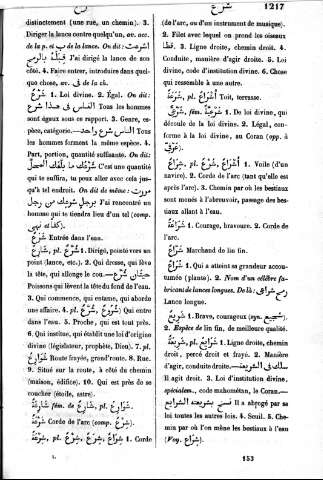 شرع 1217
distinctement (une rue, un chemin). 3.
Diriger la lance contre quelqu'un, av. acc.
de la p. et ب de la lance. On dit: اشرعت
بالرمح J'ai dirigé la lance de son
côté. 4. Faire entrer, introduire dans quel-
que chose, av. فى de la ch.
شَرْعٌ 1. Loi divine. 2. Égal. On dit:
الناس فى هذا شرع Tous les hommes
sont égaux sous ce rapport. 3. Genre, es-
pèce, catégorie. الناس شرع واحد Tous
les hommes forment la même espèce. 4.
Part, portion, quantité suffisante. On dit:
شرعك ما بلغك المحل C'est une quantité
qui te suffira, tu peux aller avec cela jus-
qu'à tel endroit. On dit de même: مررت
برجل شرعك من رجل J'ai rencontré un
homme qui te tiendra lieu d'un tel (comp.
نهى, كفاء).
شُرُوعٌ Entrée dans l'eau.
شَارِعٌ, pl. شُرَّعٌ 1. Dirigé, pointé vers un
point (lance, etc.). 2. Qui dresse, qui lève
la tête, qui allonge le cou. حيتان شُرَّعٌ
Poissons qui lèvent la tête du fond de l'eau.
3. Qui commence, qui entame, qui aborde
une affaire. 4. pl. شُرَّعٌ, شُرُوعٌ Qui entre
dans l'eau. 5. Proche, qui est tout près.
6. Qui institue, qui établit une loi d'origine
divine (législateur, prophète, Dieu). 7. pl.
شَوَارِعُ Route frayée, grand'route. 8. Rue.
9. Situé sur la route, à côté du chemin
(maison, édifice). 10. Qui est près de se
coucher (étoile, astre).
شَارِعَةٌ fém. de شَارِعٌ, pl. شَوَارِعُ.
شِرْعٌ Corde de l'arc (comp. شِرْعَةٌ).
شِرْعَةٌ, pl. شِرْعٌ, شِرَعٌ, شِرَاعٌ 1. Corde
(de l'arc, ou d'un instrument de musique).
2. Filet avec lequel on prend les oiseaux
قطا. 3. Ligne droite, chemin droit. 4.
Conduite, manière d'agir droite. 5. Loi
divine, code d'institution divine. 6. Chose
qui ressemble à une autre.
شَرَعٌ, pl. أَشْرَاعٌ Toit, terrasse.
شَرْعِىٌّ, fém. شَرْعِيَّةٌ 1. De loi divine, qui
découle de la loi divine. 2. Légal, con-
forme à la loi divine, au Coran (opp. à
عرفى).
شِرَاعٌ, pl. أَشْرِعَةٌ, شُرُعٌ 1. Voile (d'un
navire). 2. Corde de l'arc (tant qu'elle est
après l'arc). 3. Chemin par où les bestiaux
sont menés à l'abreuvoir, passage des bes-
tiaux allant à l'eau.
شَرَاعَةٌ 1. Courage, bravoure. 2. Corde de
l'arc.
شَرَّاعٌ Marchand de lin fin.
شُرَاعِىٌّ 1. Qui a atteint sa grandeur accou-
tumée (plante). 2. Nom d'un célèbre fa-
bricant de lances longues. De là: رمح شراعى
Lance longue.
شَرِيعٌ 1. Brave, courageux (syn. شجيع).
2. Espèce de lin fin, de meilleure qualité.
شَرِيعَةٌ, pl. شَرَائِعُ 1. Ligne droite, chemin
droit, percé droit et frayé. 2. Manière
d'agir, conduite droite. سلك فى الشريعة
Il agit droit. 3. Loi d'institution divine,
spécialem., code mahométan, le Coran.—
نسخ بشريعته الشرائع Il a abrogé par sa
loi toutes les autres lois. 4. Seuil. 5. Che-
min par où l'on mène les bestiaux à l'eau
(Voy. شِرَاعٌ).
I. 153